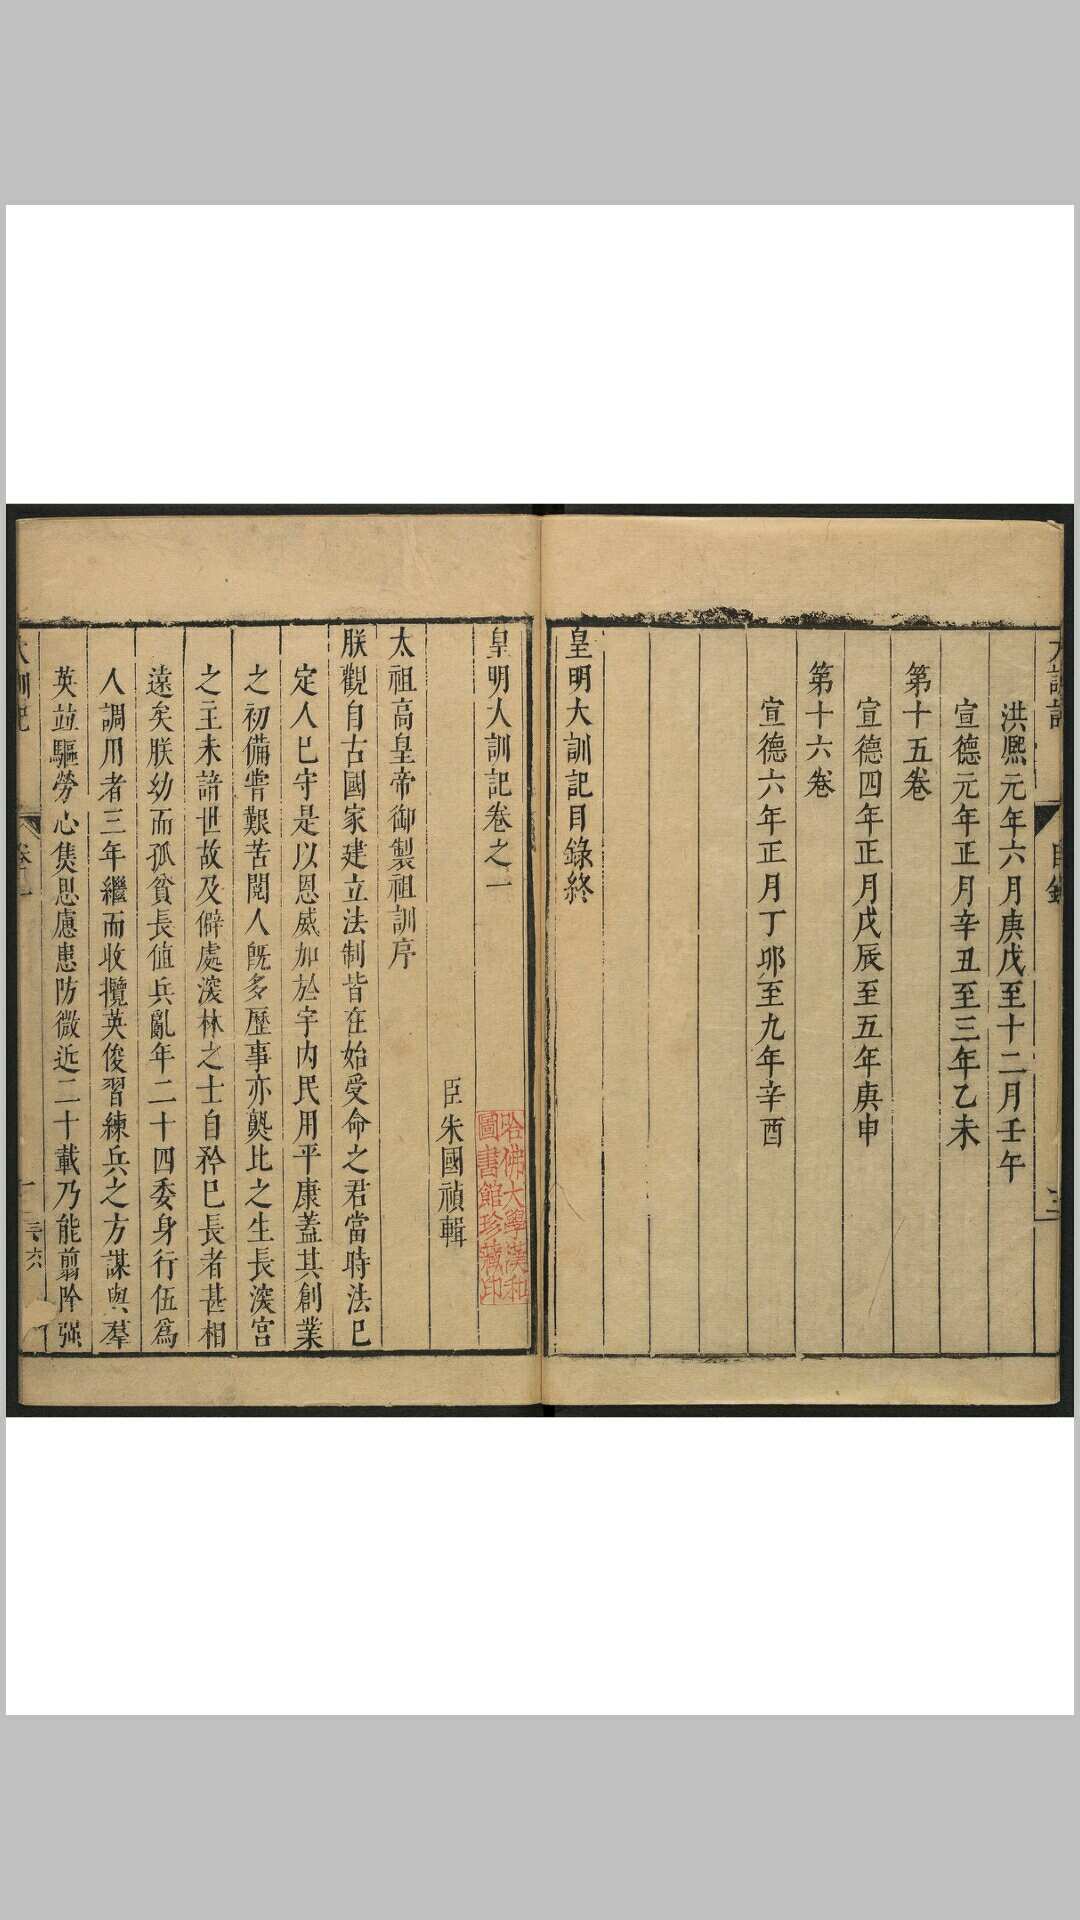 洪熙元年六月庚戊至十二月壬午
宣德元年正月辛丑至三年乙未
第十五卷
宣德四年正月戊辰至五年庚申
第十六卷
宣德六年正月丁卯至九年辛酉
皇明大訓記目錄終
皇明大訓記卷之一
臣朱國禎輯
哈佛大學漢和
圖書館珍藏印
太祖高皇帝御製祖訓序
朕觀自古國家建立法制皆在始受命之君當時法已
定人已守是以恩威加於宇內民用平康蓋其創業
之初備嘗艱苦閱人既多歷事亦熟比之生長深宮
之主未諳世故及僻處深林之士自矜已長者甚相
遠矣朕幼而孤貧長值兵亂年二十四委身行伍為
人調用者三年繼而收攬英俊習練兵之方謀與羣
英並驅勞心焦思慮患防微近二十載乃能翦除强
大訓記
卷之一